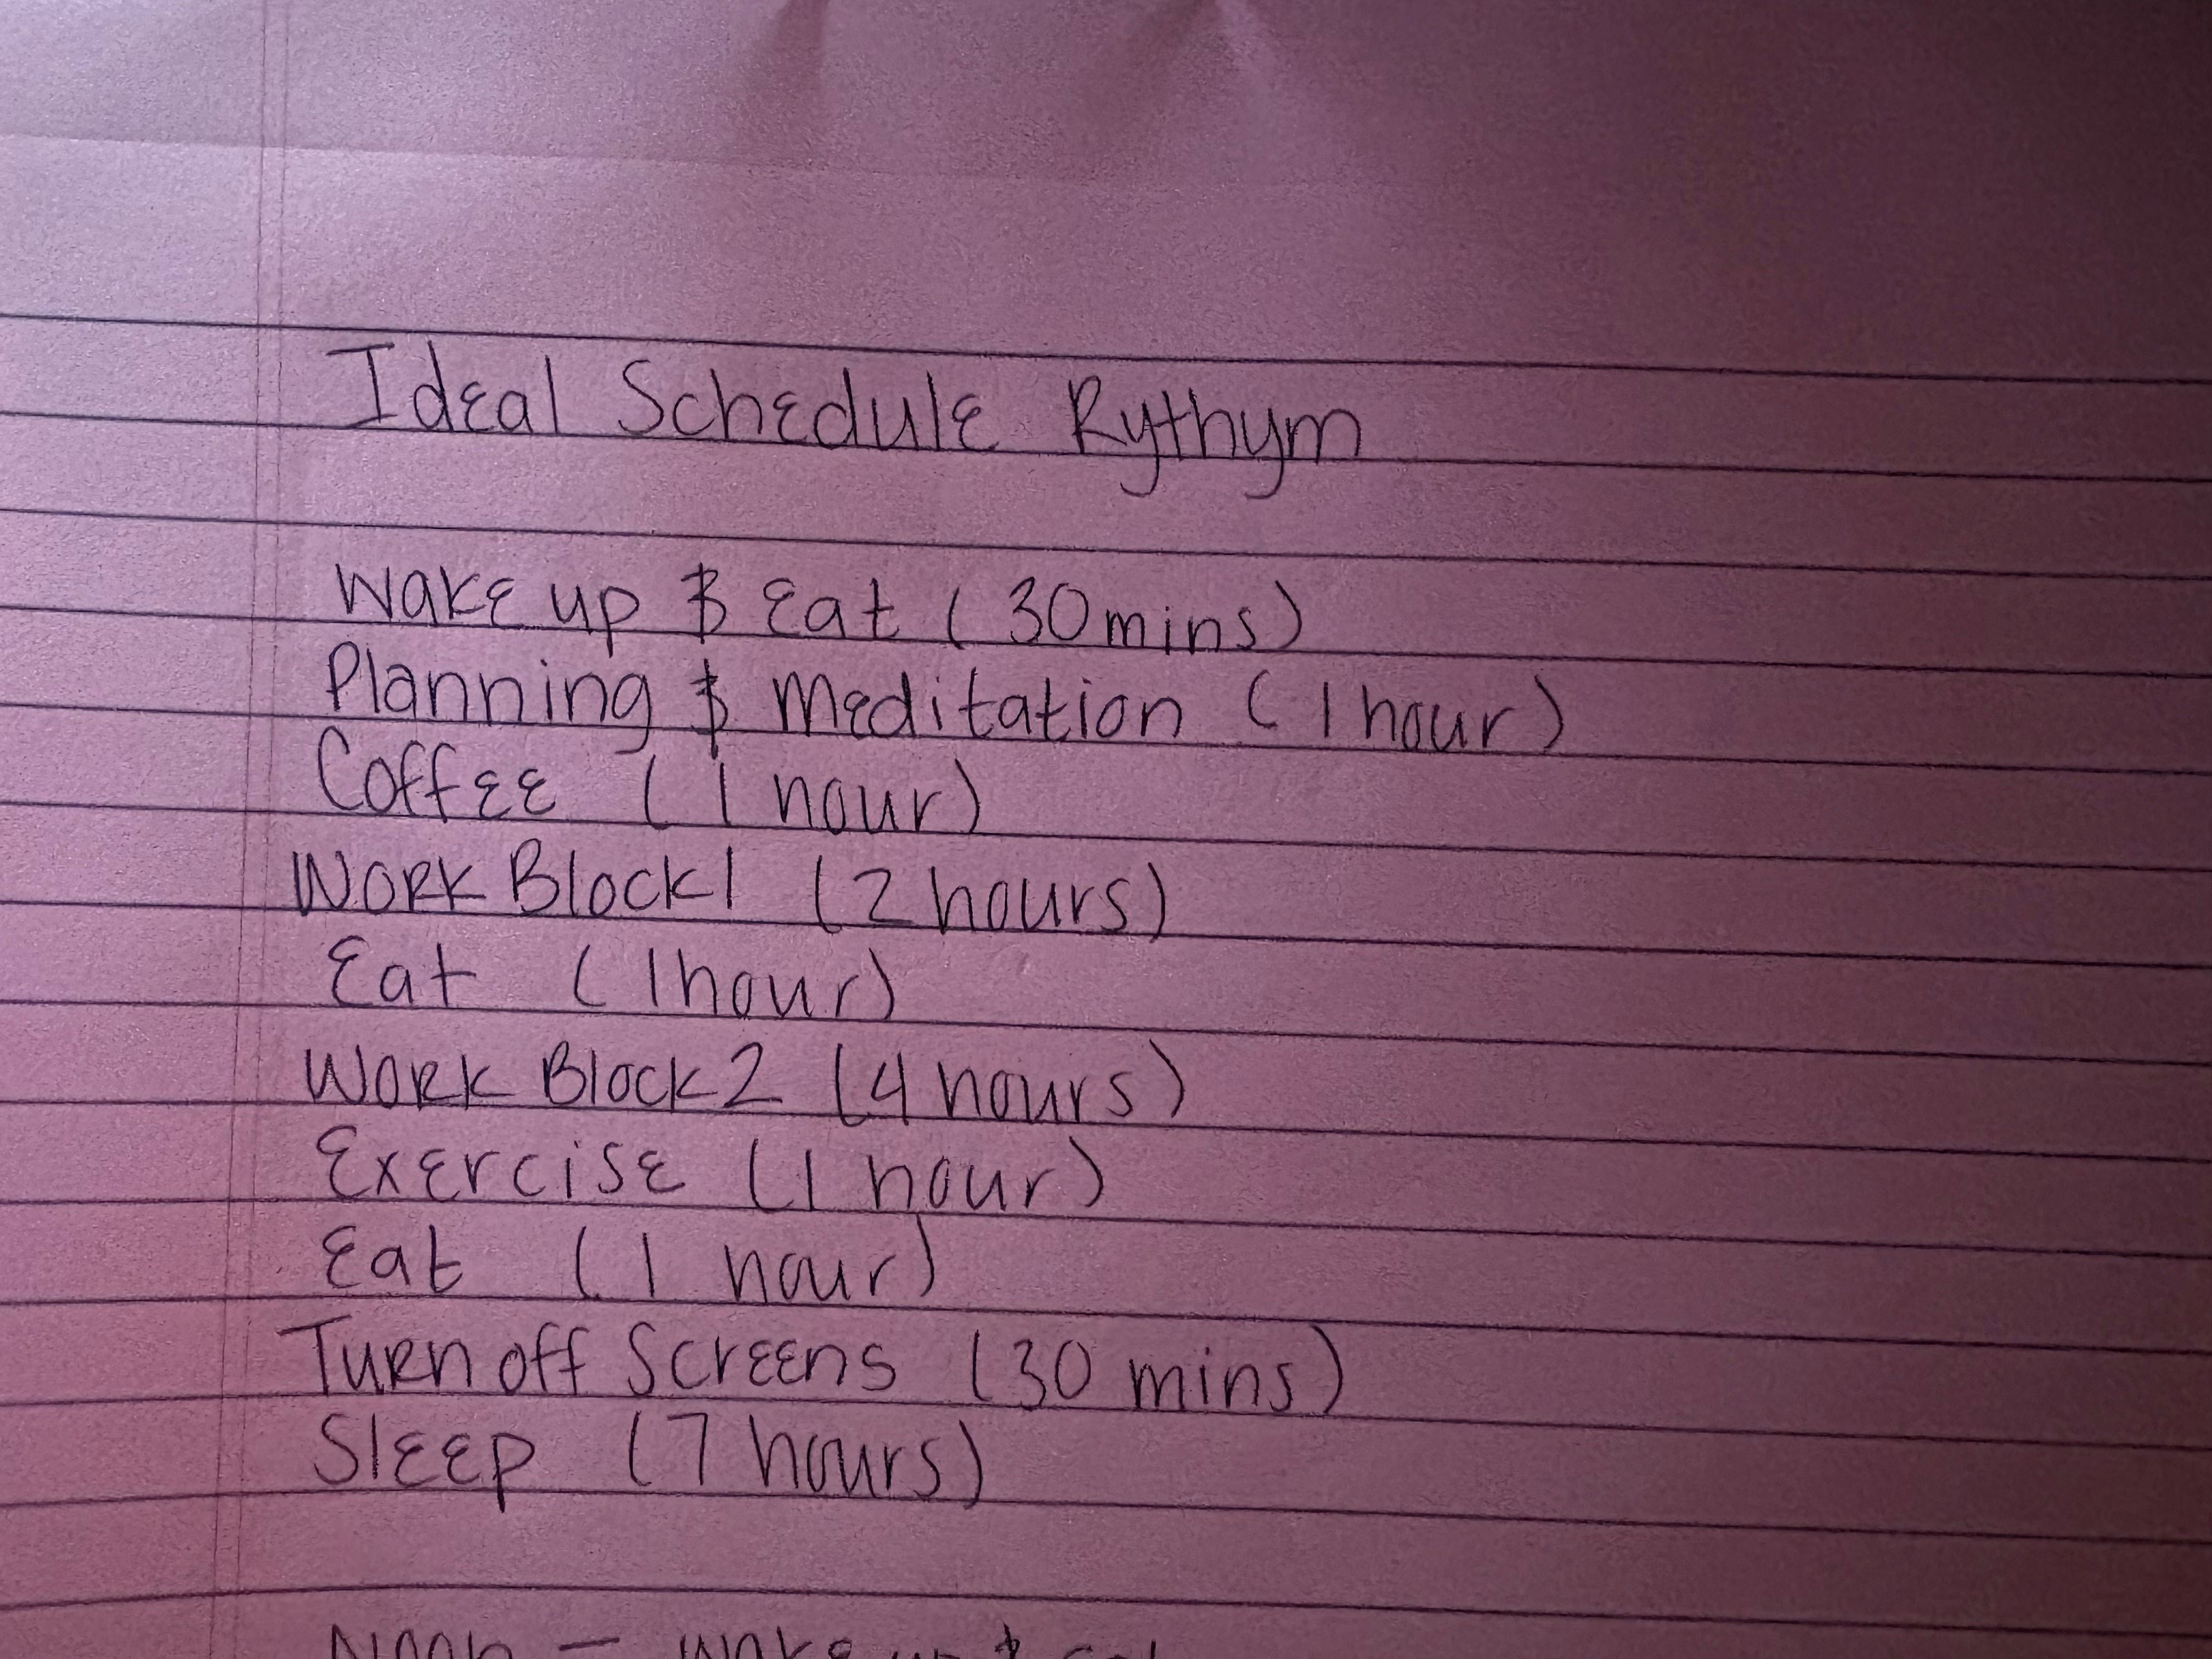 Ideal Schedule Rythym
Wake up & Eat (30 mins)
Planning & Meditation (1 hour)
Coffee (1 hour)
Work Block 1 (2 hours)
Eat (1 hour)
Work Block 2 (4 hours)
Exercise (1 hour)
Eat (1 hour)
Turn off Screens (30 mins)
Sleep (7 hours)
Noon - Wake up & eat